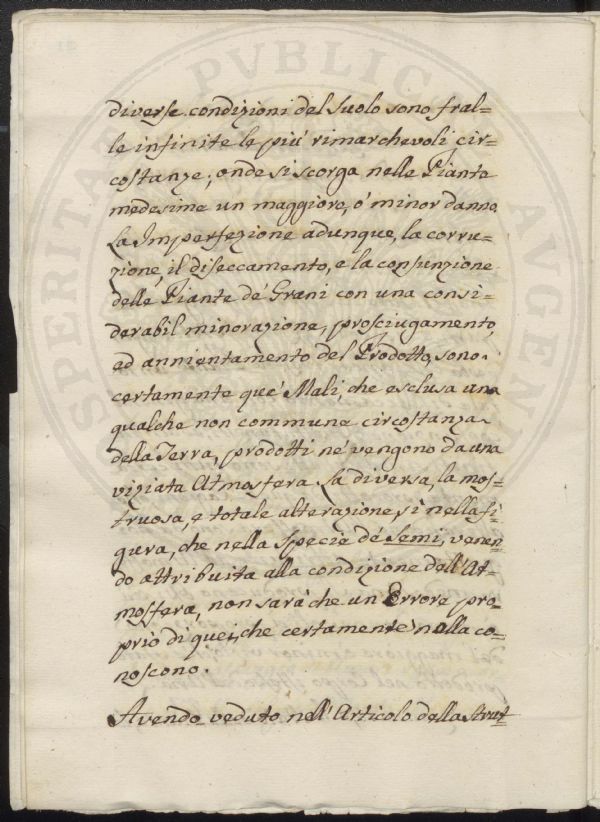 diverse condizioni del suolo sono fral=
le infinite le più rimarchevoli cir=
costanze; onde si scorga nelle Piante
medesime un maggiore, ó minor danno.
La Imperfezione adunque, la corru=
zione, il diseccamento, e la consunzione
delle Piante dé Grani con una consi=
derabil minorazione, prosciugamento,
ed annientamento del Prodotto, sono
certamente que' Mali, che esclusa una
qualche non commune circostanza
della Terra, prodotti né vengono da una
viziata Atmosfera. La diversa, la mos=
truosa, e totale alterazione, si nella fi=
gura, che nella specie dé Semi, venen=
do attribuita alla condizione dell'At=
mosfera, non sarà che un Errore pro=
prio di quei, che certamente nulla co=
noscono.
Avendo veduto nell'Articolo della Strut